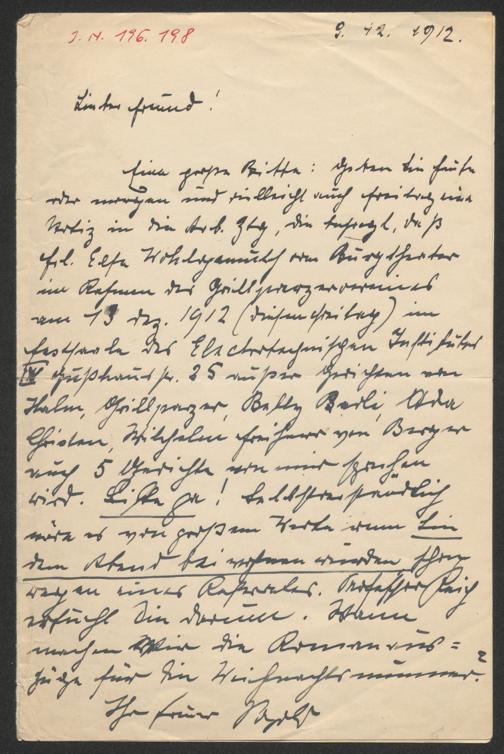 J. N. 196.198
9. 12. 1912.
Lieber Freund!
Eine große Bitte: Geben Sie heute
oder morgen und vielleicht auch Freitag eine
Notiz in die Arb. Ztg, die besagt, daß
Frl. Else Wohlgemuth vom Burgtheater
im Rahmen des Grillparzervereines
am 13 Dez. 1912 (diesen Freitag) im
Festsaale des Electrotechnischen Institutes
IV Gußhausstr. 25 außer Gedichten von
Halm, Grillparzer, Betty Paoli, Ada
Christen, Wilhelm Freiherr von Berger
auch 5 Gedichte von mir sprechen
wird. Bitte ja! Selbstverständlich
wäre es von großem Werte wenn Sie
dem Abend beiwohnen würden schon
wegen eines Referates. Professor Reich
ersucht Sie darum. Wann
machen Wir die Romanaus=
züge für die Weihnachtsnummer?
Ihr